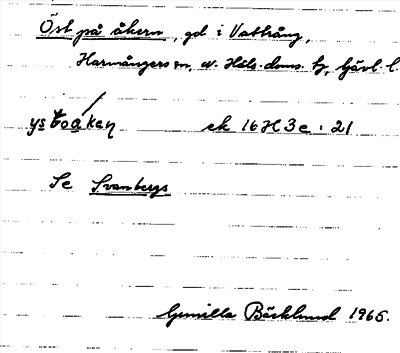 Öst på åkern, gd i Vattrång,
Harmångers sn, n. Häls. doms. tg, Gävl. l.
ek 16H3e : 21
Se Svanbergs
Gunilla Bäcklund 1965.